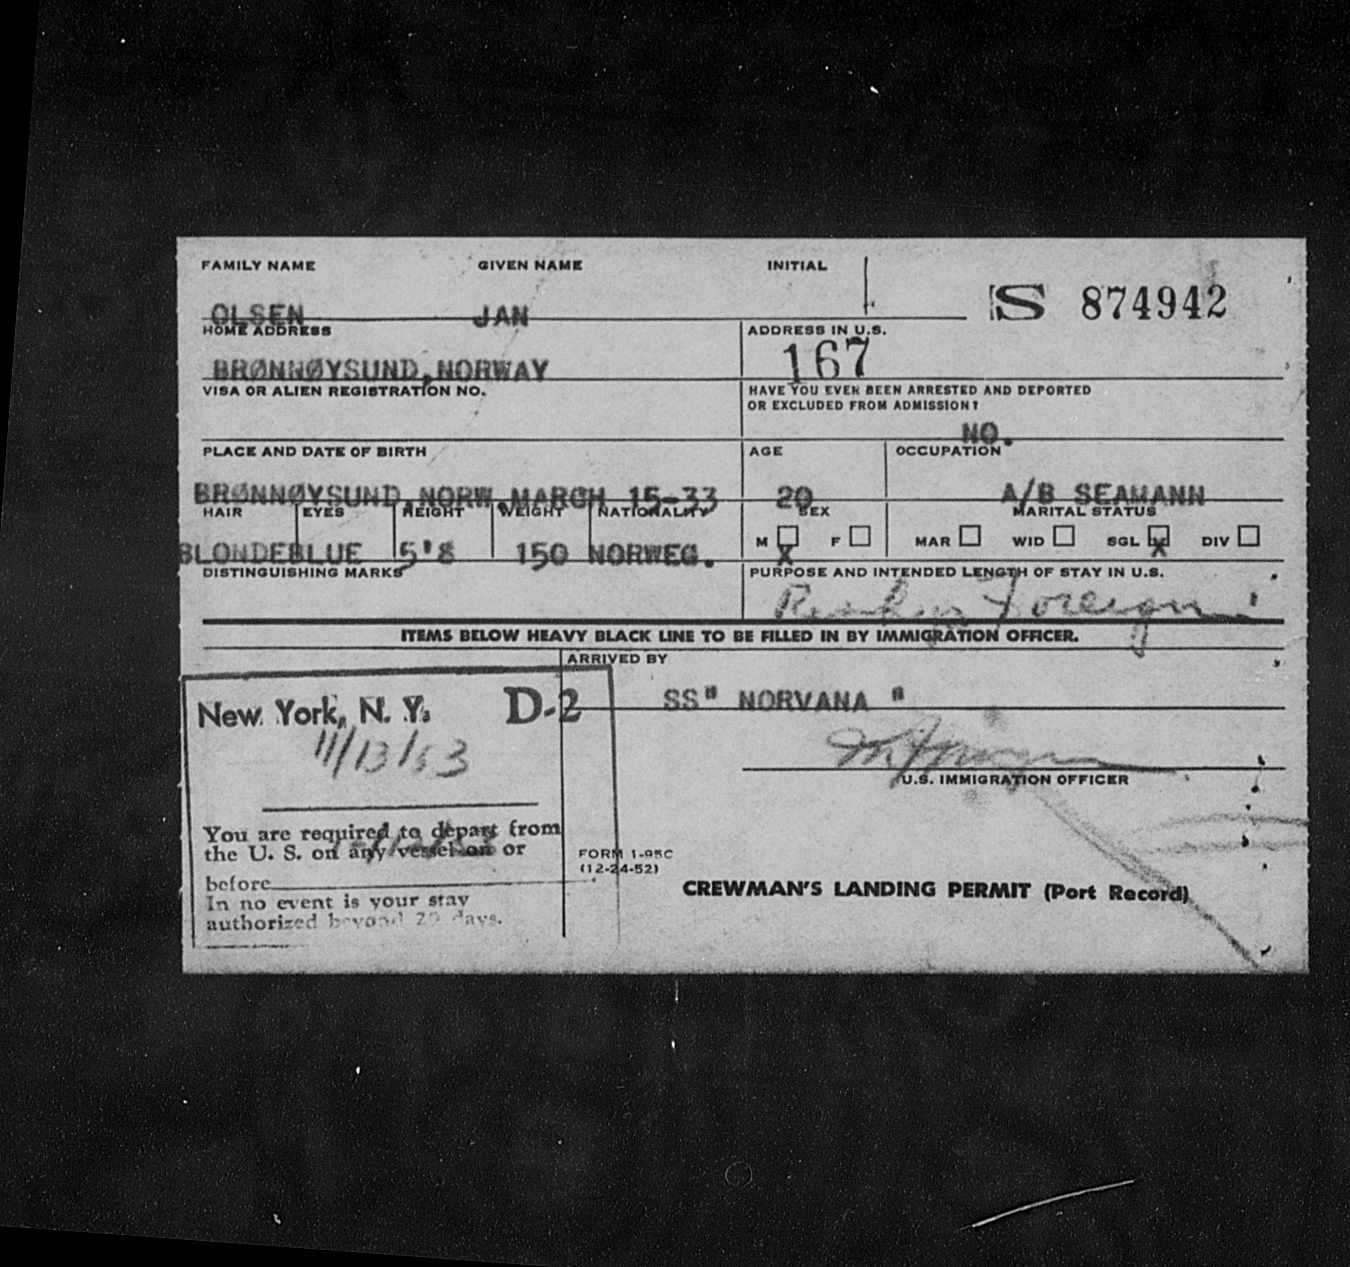 FAMILY NAME GIVEN NAME INITIAL
S 874942
OLSEN JAN
HOME ADDRESS ADDRESS IN U.S.
BRØNNØYSUND,NORWAY 167
VISA OR ALIEN REGISTRATION NO. HAVE YOU EVER BEEN ARRESTED AND DEPORTED
OR EXCLUDED FROM ADMISSION?
NO.
PLACE AND DATE OF BIRTH AGE OCCUPATION
BRØNNØYSUND,NORW.MARCH 15-33 20 A/B SEAMANN
HAIR EYES HEIGHT WEIGHT NATIONALITY SEX MARITAL STATUS
M X F MAR WID SGL X DIV
BLONDE BLUE 5'8 150 NORWEG.
DISTINGUISHING MARKS PURPOSE AND INTENDED LENGTH OF STAY IN U.S.
Foreign
ITEMS BELOW HEAVY BLACK LINE TO BE FILLED IN BY IMMIGRATION OFFICER.
ARRIVED BY
SS" NORVANA "
New York, N. Y. D-2
11/13/53
U.S. IMMIGRATION OFFICER
You are required to depart from
the U. S. on any vessel on or
before
In no event is your stay
authorized beyond 29 days.
FORM I-95C
(12-24-52)
CREWMAN'S LANDING PERMIT (Port Record)